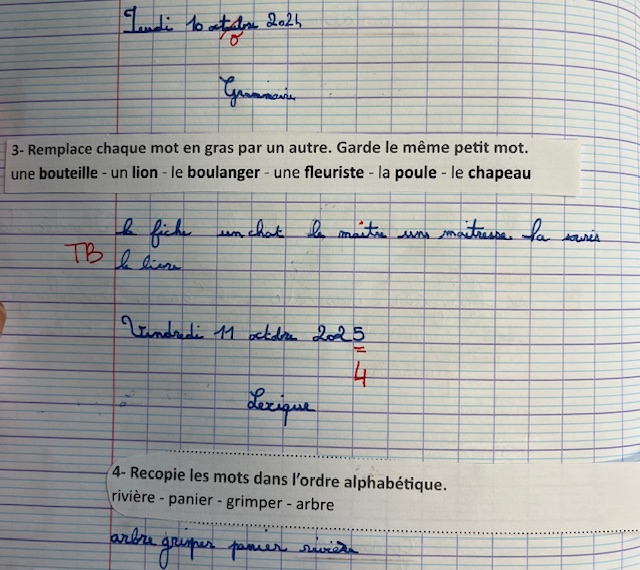 Jeudi 10 octobre 2024
o
Grammaire
3- Remplace chaque mot en gras par un autre. Garde le même petit mot.
une bouteille - un lion - le boulanger - une fleuriste - la poule - le chapeau
fiche un chat le maître une maitresse la souris
TB le livre
Vendredi 11 octobre 2025
4
Lexique
4- Recopie les mots dans l'ordre alphabétique.
rivière - panier - grimper - arbre
arbre grimper panier rivière